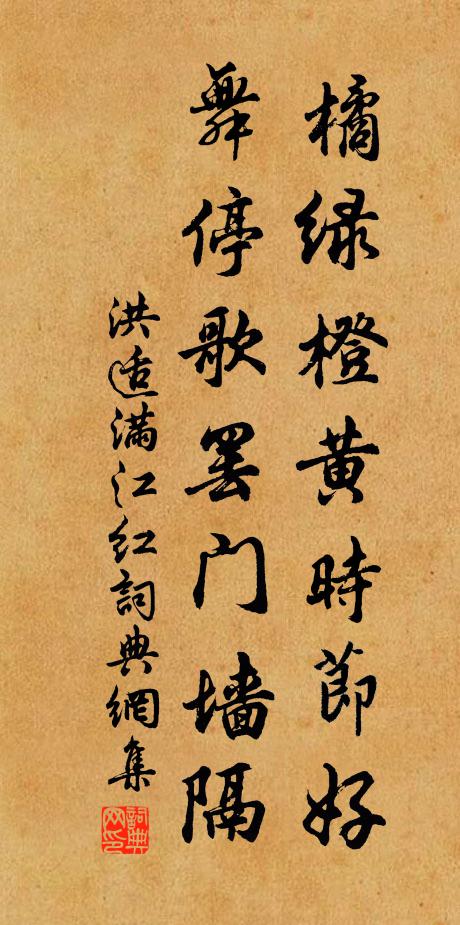 橘绿橙黄時節好
舞停歌罢门墙隔
洪适满江红詞典網集
詞典网印